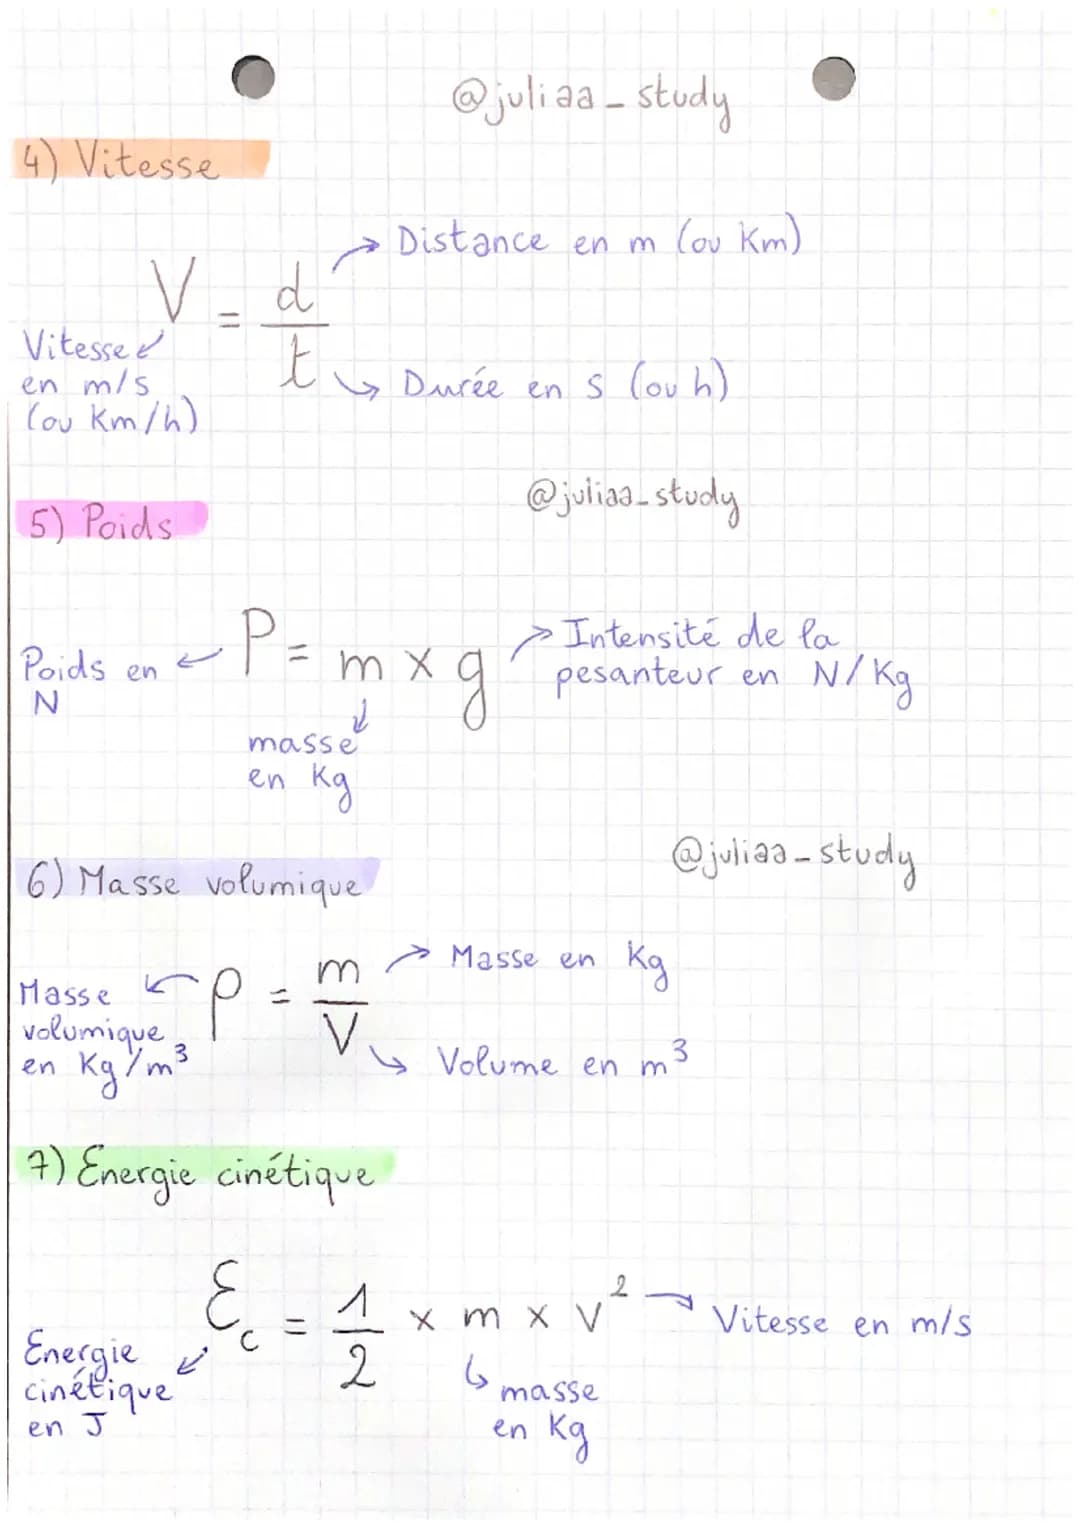 @juliaa_study
4) Vitesse
Distance en m (ou Km)
V = d/t
Vitesse
en m/s
(ou Km/h)
Durée en s (ou h)
@juliaa_study
5) Poids
P = m x g
Intensité de la
pesanteur en N/Kg
Poids en
N
masse
en Kg
@juliaa_study
6) Masse volumique
Masse en Kg
ρ = m/V
Masse
volumique
en Kg/m³
Volume en m³
7) Energie cinétique
Ec = 1/2 x m x v²
Vitesse en m/s
Energie
cinétique
en J
masse
en Kg